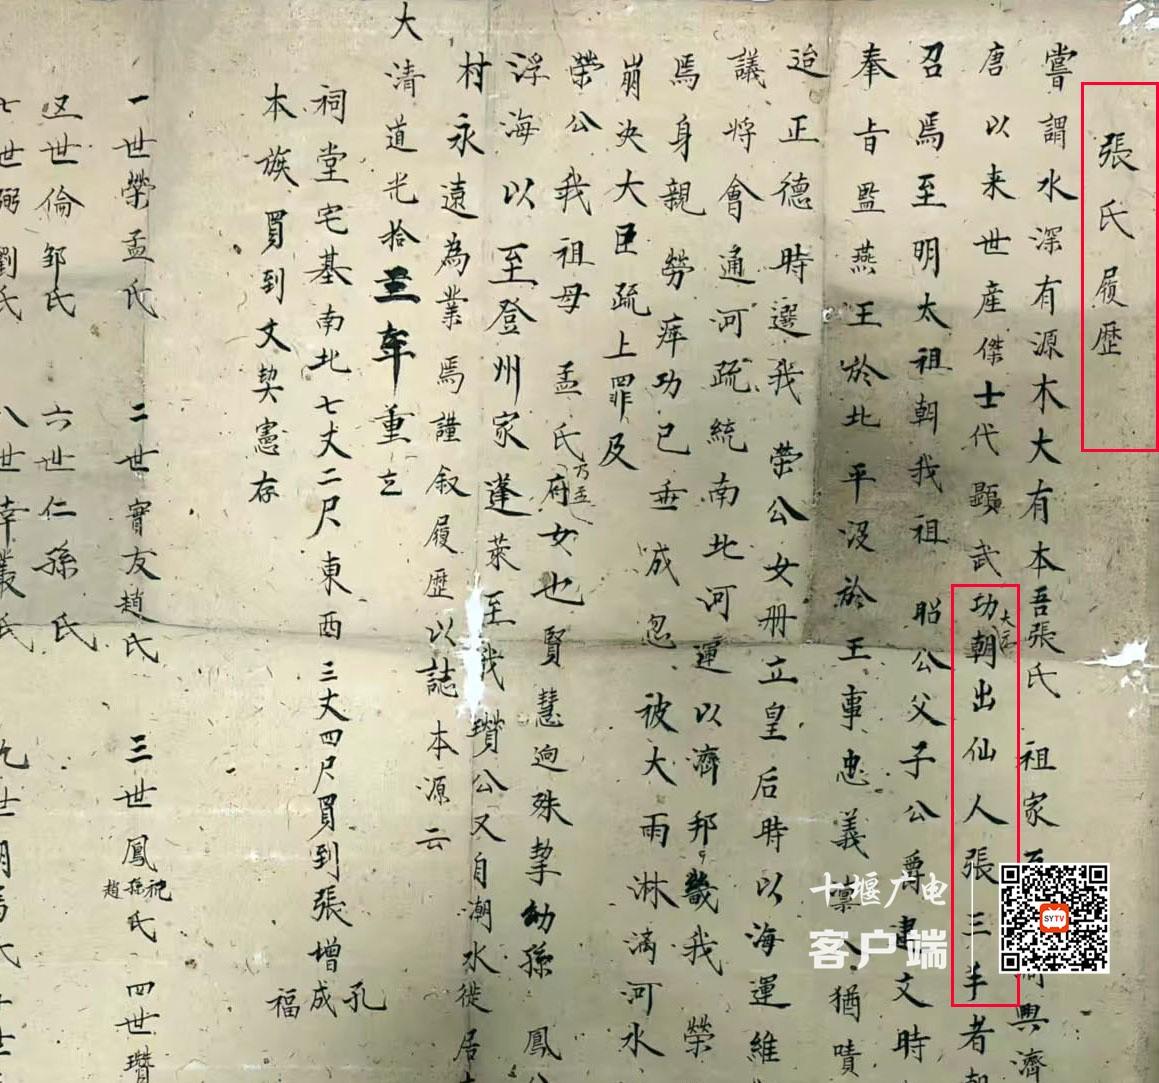 張氏履歷
嘗謂水深有源木大有本吾張氏 祖家至 河興濟
唐以来世産傑士代顯武功大元朝出仙人張三丰者
召焉至明太祖朝我祖 昭公父子公爵書文時
奉旨監燕王於北平沒於王事忠義凛人猶嘖
迨正德時選我 榮公女册立皇后時以海運維
議将會通河疏統南北河運以濟邦畿我 榮
焉身親勞瘁功已垂成忽被大雨淋漓河水
崩决大臣疏上罪及
榮公我祖母 孟氏乃孟府女也賢慧逈殊挈幼孫 鳳
浮海以至登州家蓬萊至我瓚公又自潮水徙居
村永遠為業焉謹叙履歷以誌本源云
大清道光拾三年重立
祠堂宅基南北七丈二尺東西三丈四尺買到張增成 孔
福
本族買到文契憲存
一世榮孟氏 二世實友趙氏 三世鳳祝孫趙氏 四世瓚
五世倫邹氏 六世仁孫氏
七世弼劉氏 八世幸叢氏
十堰广电
客户端
SYTV